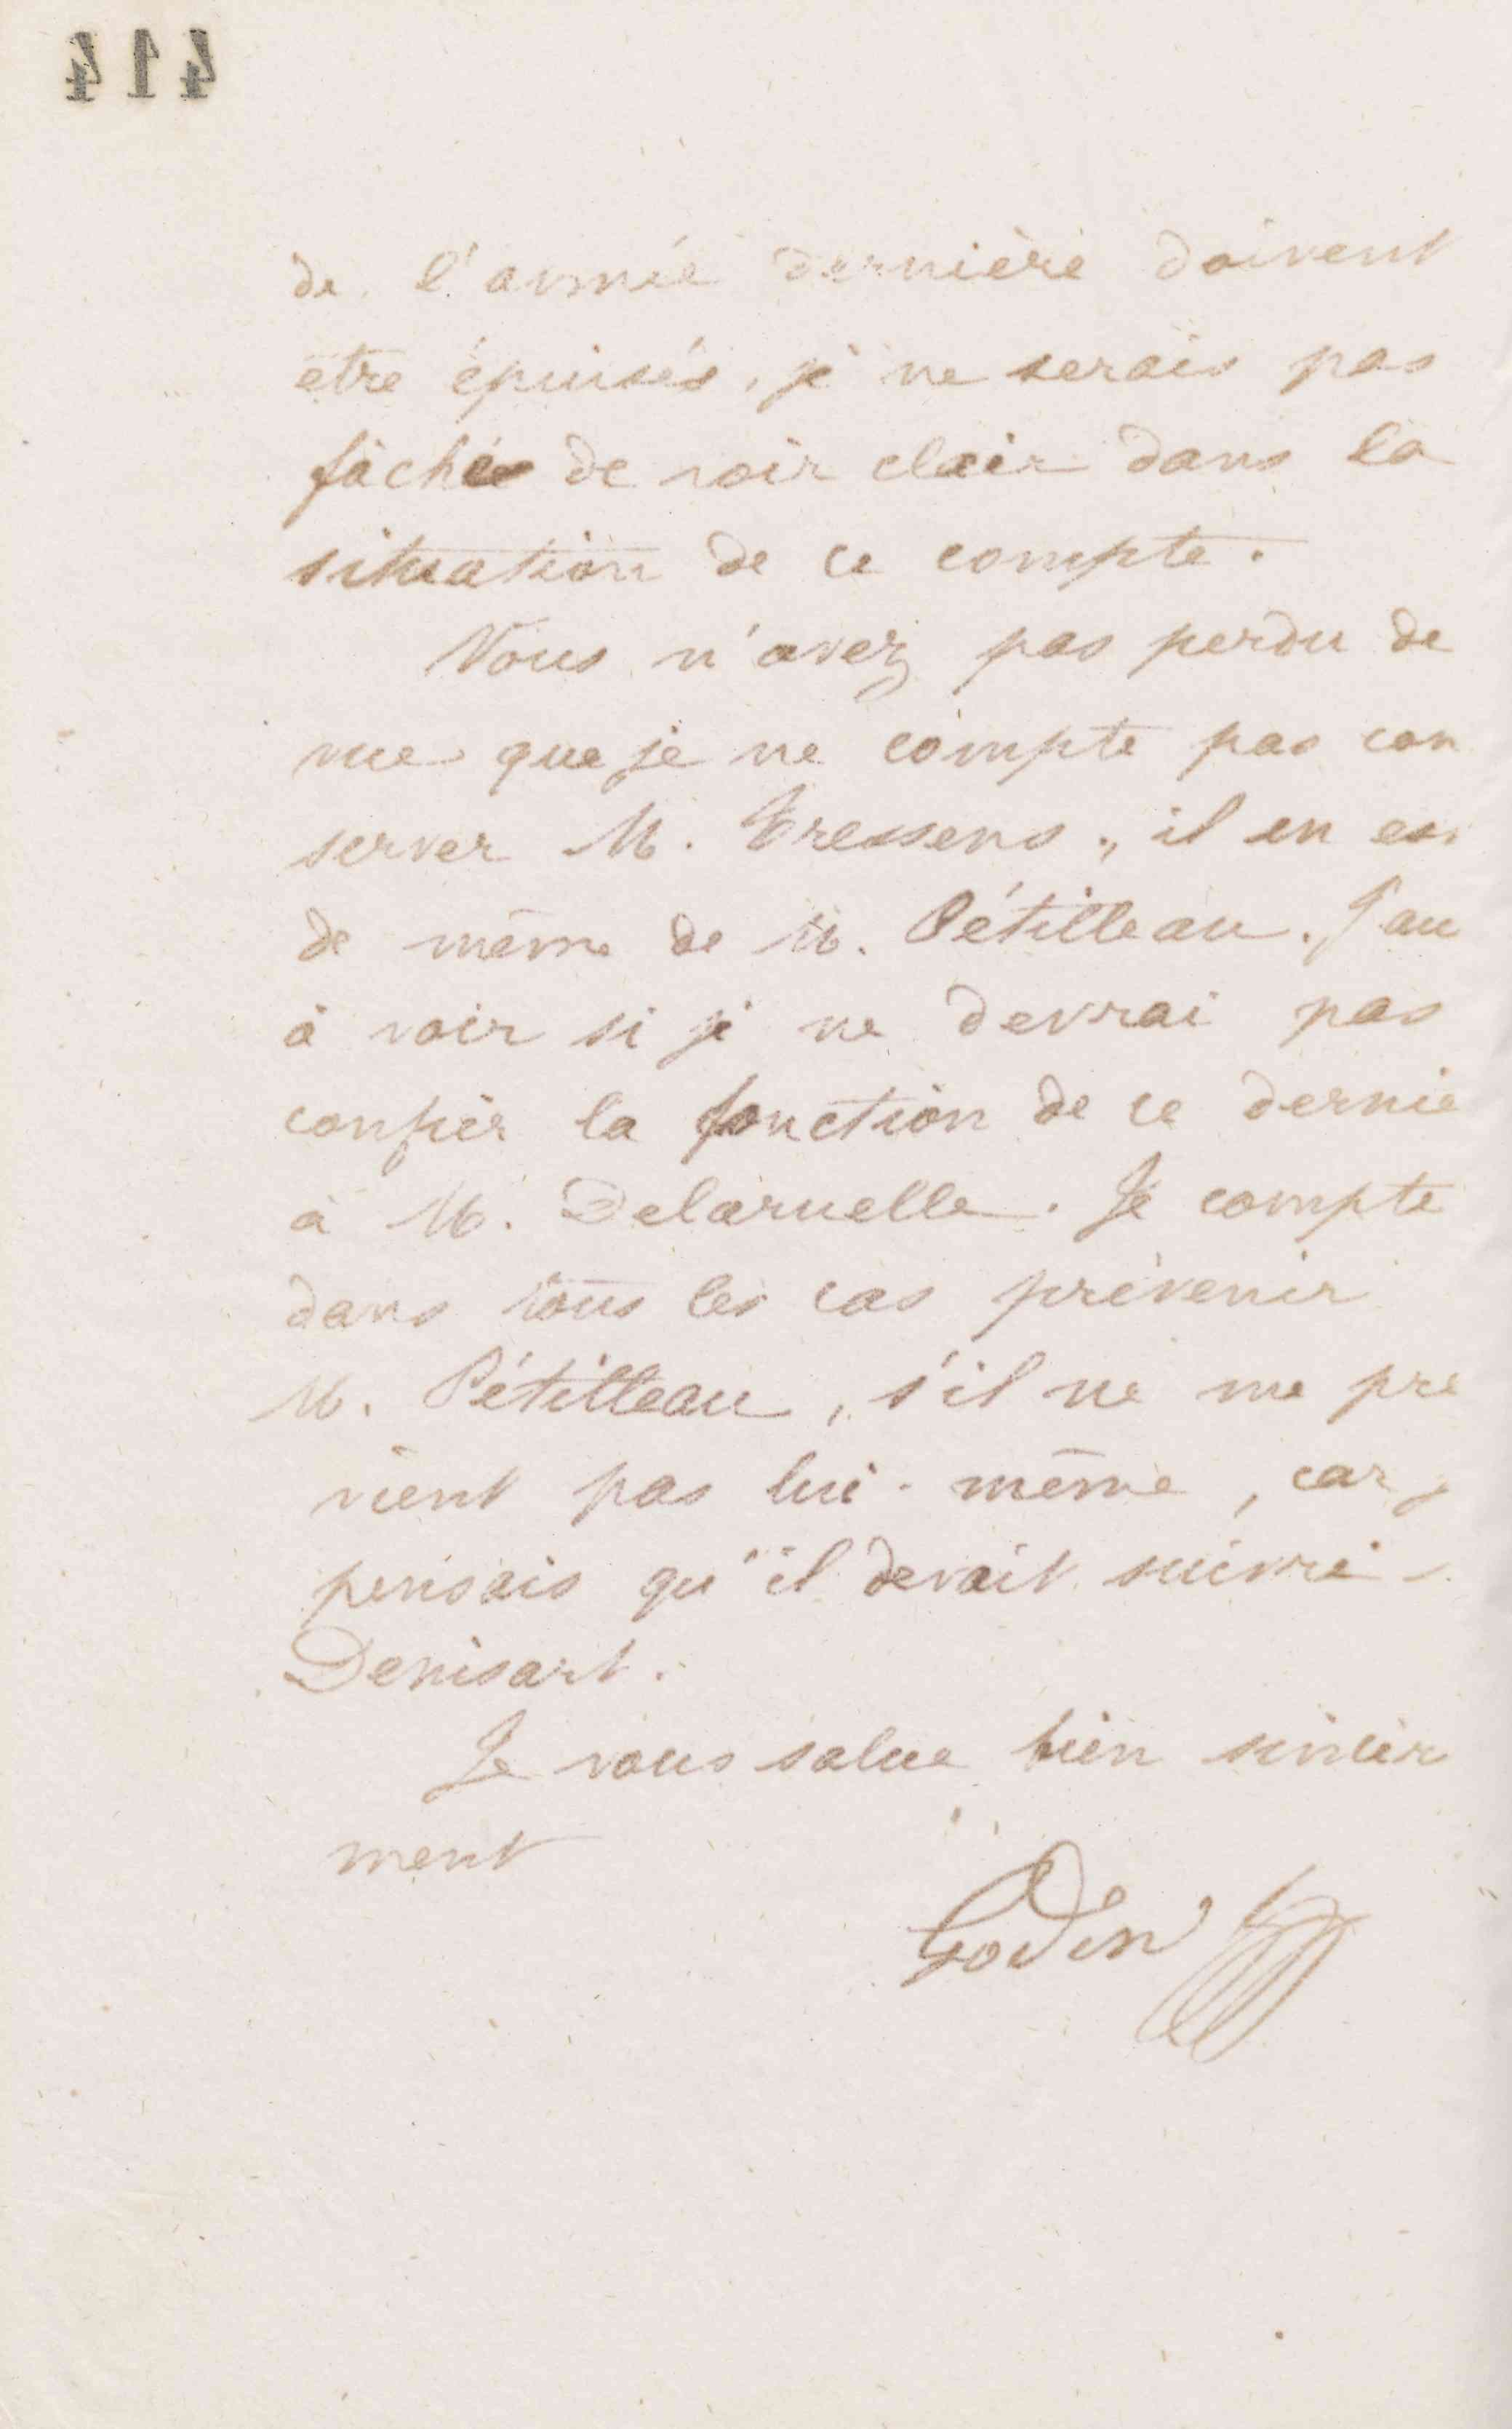 414
de l'année dernière doivent
être épuisés, je ne serais pas
fâché de voir clair dans la
situation de ce compte.
Vous n'avez pas perdu de
vue que je ne compte pas con
server M. Gressens, il en es
de même de M. Pétilleau. J'au
à voir si je ne devrai pas
confier la fonction de ce dernie
à M. Delaruelle. Je compte
dans tous les cas prévenir
M. Pétilleau, s'il ne me pré
vient pas lui-même, car j
pensais qu'il devait suivre
Denisart.
Je vous salue bien sincère
ment
Godin